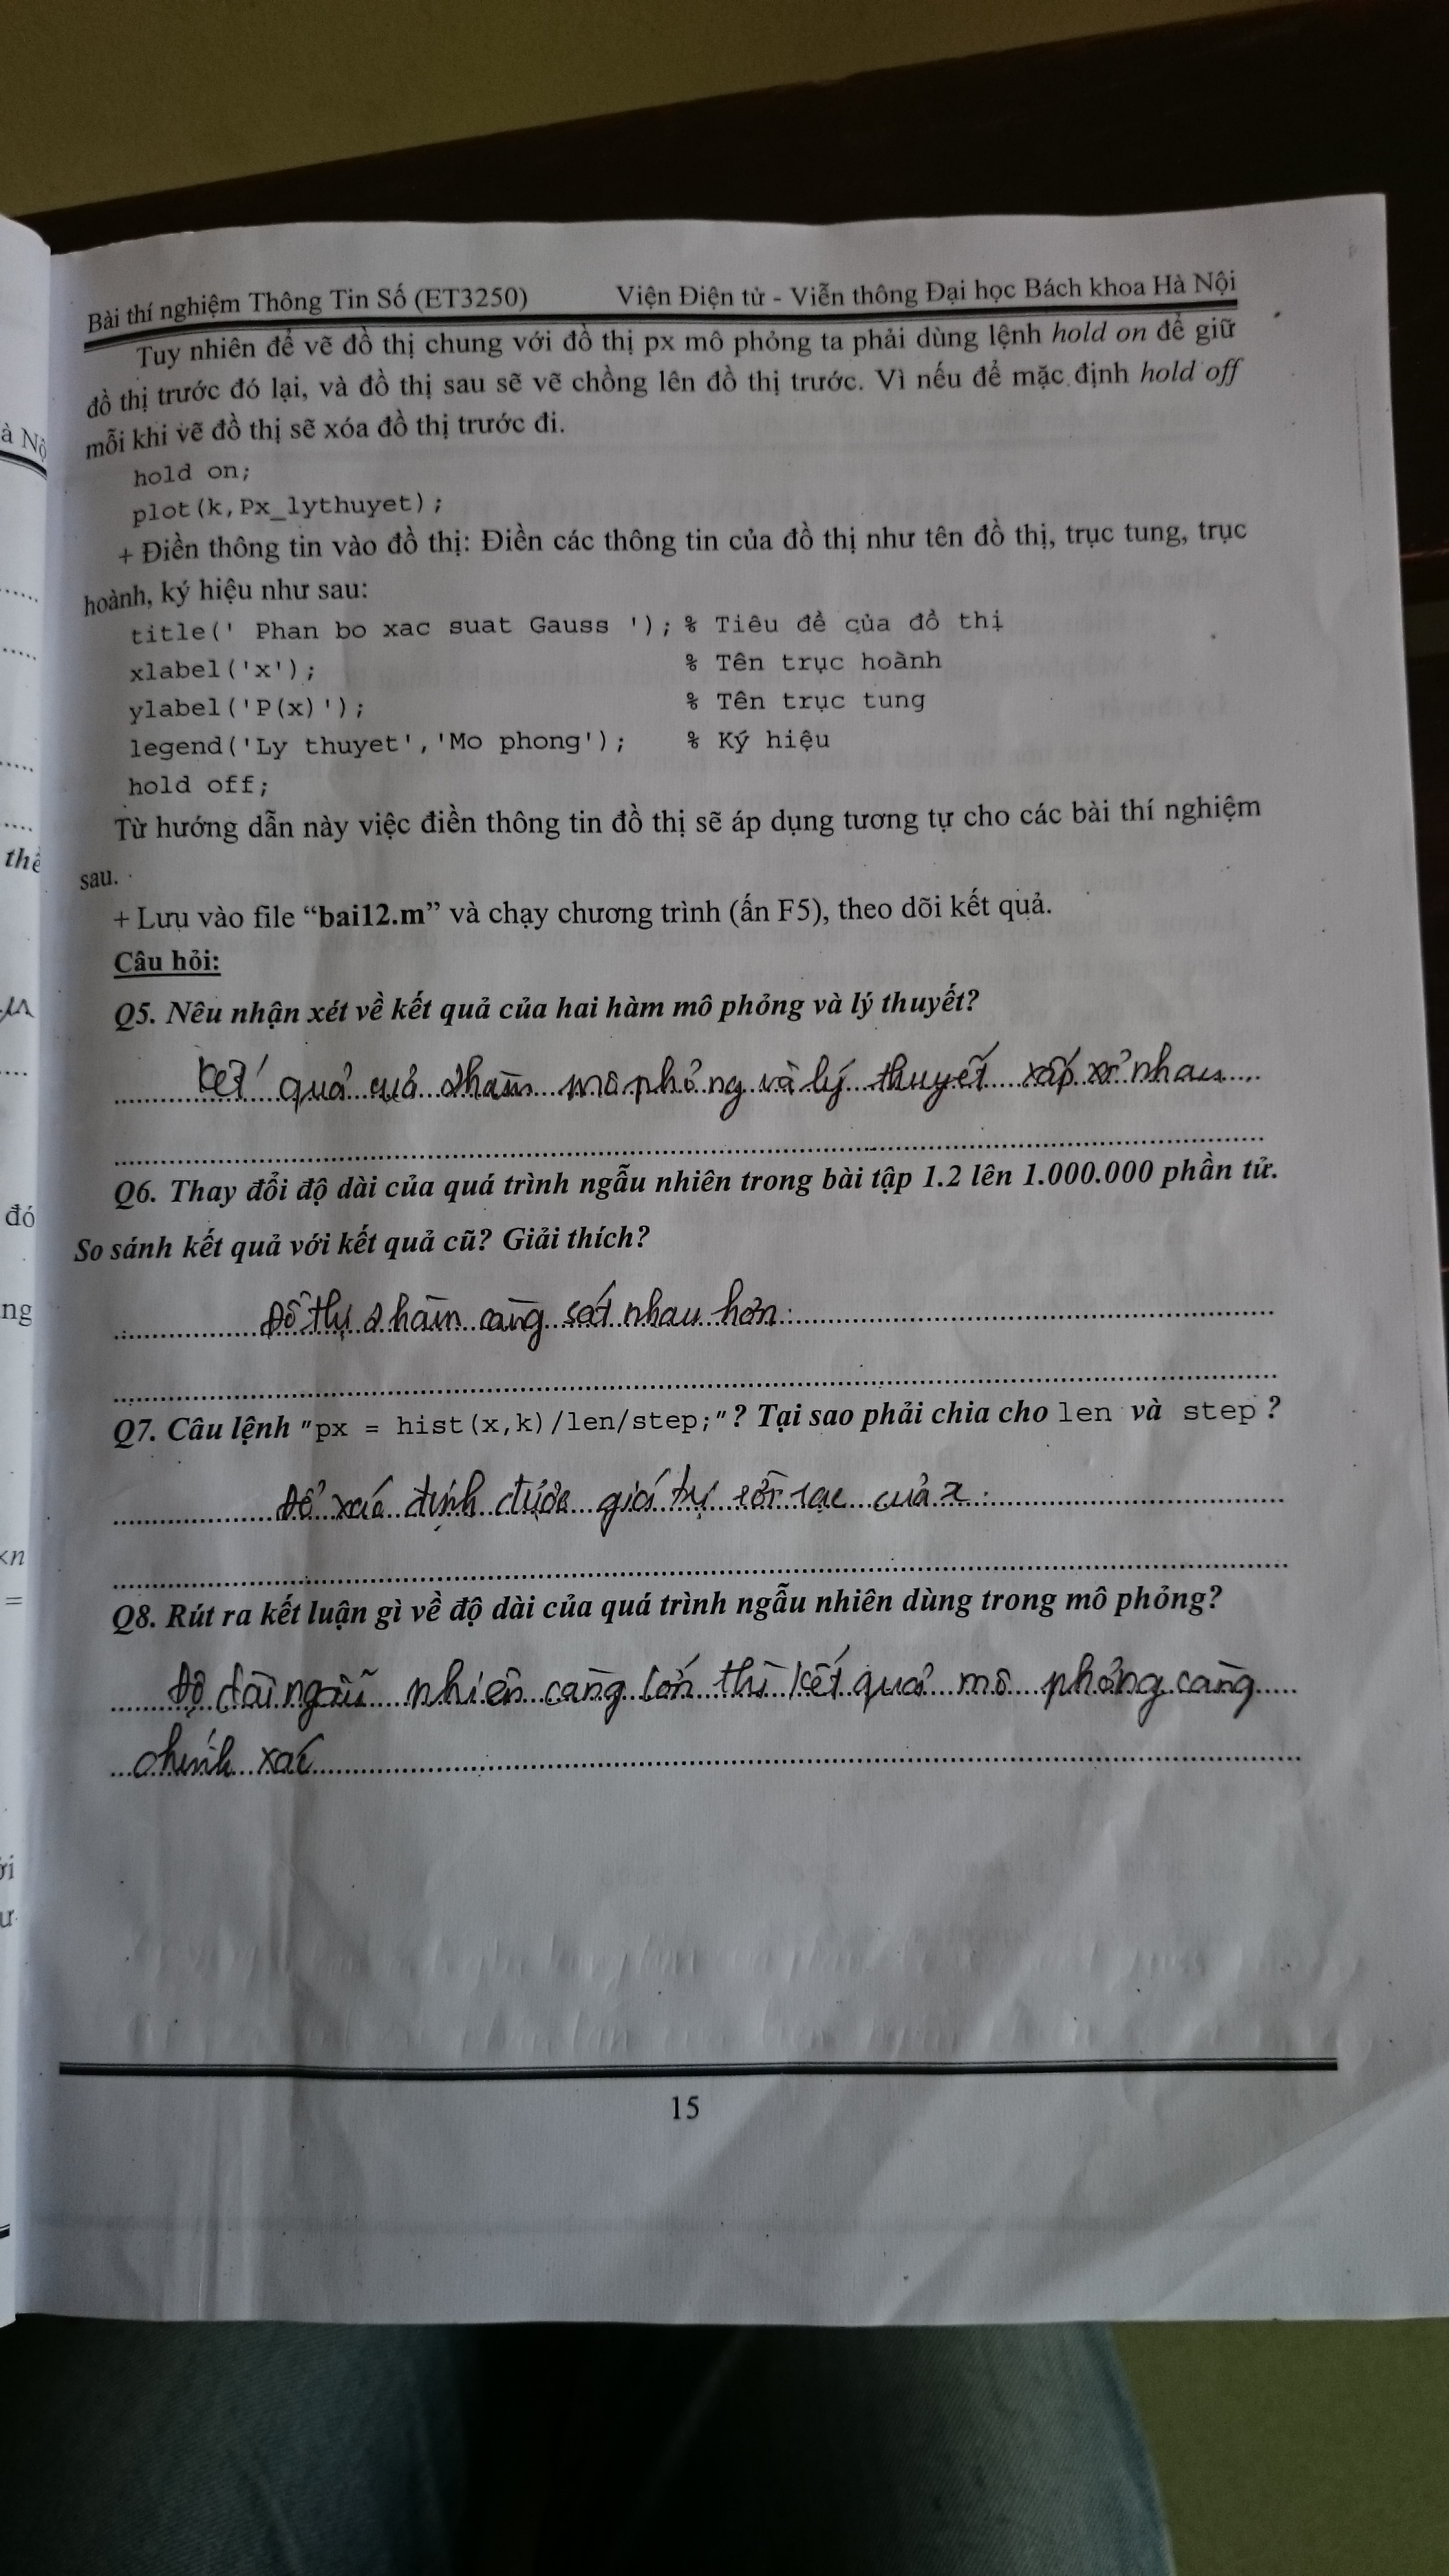 Bài thí nghiệm Thông Tin Số (ET3250) Viện Điện tử - Viễn thông Đại học Bách khoa Hà Nội
Tuy nhiên để vẽ đồ thị chung với đồ thị px mô phỏng ta phải dùng lệnh hold on để giữ
đồ thị trước đó lại, và đồ thị sau sẽ vẽ chồng lên đồ thị trước. Vì nếu để mặc định hold off
mỗi khi vẽ đồ thị sẽ xóa đồ thị trước đi.
hold on;
plot(k,Px_lythuyet);
+ Điền thông tin vào đồ thị: Điền các thông tin của đồ thị như tên đồ thị, trục tung, trục
hoành, ký hiệu như sau:
title(' Phan bo xac suat Gauss '); % Tiêu đề của đồ thị
xlabel('x'); % Tên trục hoành
ylabel('P(x)'); % Tên trục tung
legend('Ly thuyet','Mo phong'); % Ký hiệu
hold off;
Từ hướng dẫn này việc điền thông tin đồ thị sẽ áp dụng tương tự cho các bài thí nghiệm
sau.
+ Lưu vào file “bai12.m” và chạy chương trình (ấn F5), theo dõi kết quả.
Câu hỏi:
Q5. Nêu nhận xét về kết quả của hai hàm mô phỏng và lý thuyết?
Kết quả của 2 hàm mô phỏng và lý thuyết xấp xỉ nhau
Q6. Thay đổi độ dài của quá trình ngẫu nhiên trong bài tập 1.2 lên 1.000.000 phần tử.
So sánh kết quả với kết quả cũ? Giải thích?
Đồ thị 2 hàm càng sát nhau hơn.
Q7. Câu lệnh "px = hist(x,k)/len/step;"? Tại sao phải chia cho len và step ?
Để xác định được giá trị rời rạc của x.
Q8. Rút ra kết luận gì về độ dài của quá trình ngẫu nhiên dùng trong mô phỏng?
Độ dài ngẫu nhiên càng lớn thì kết quả mô phỏng càng
chính xác
15
à Nộ
thể
đó
ng
×n
=
ư